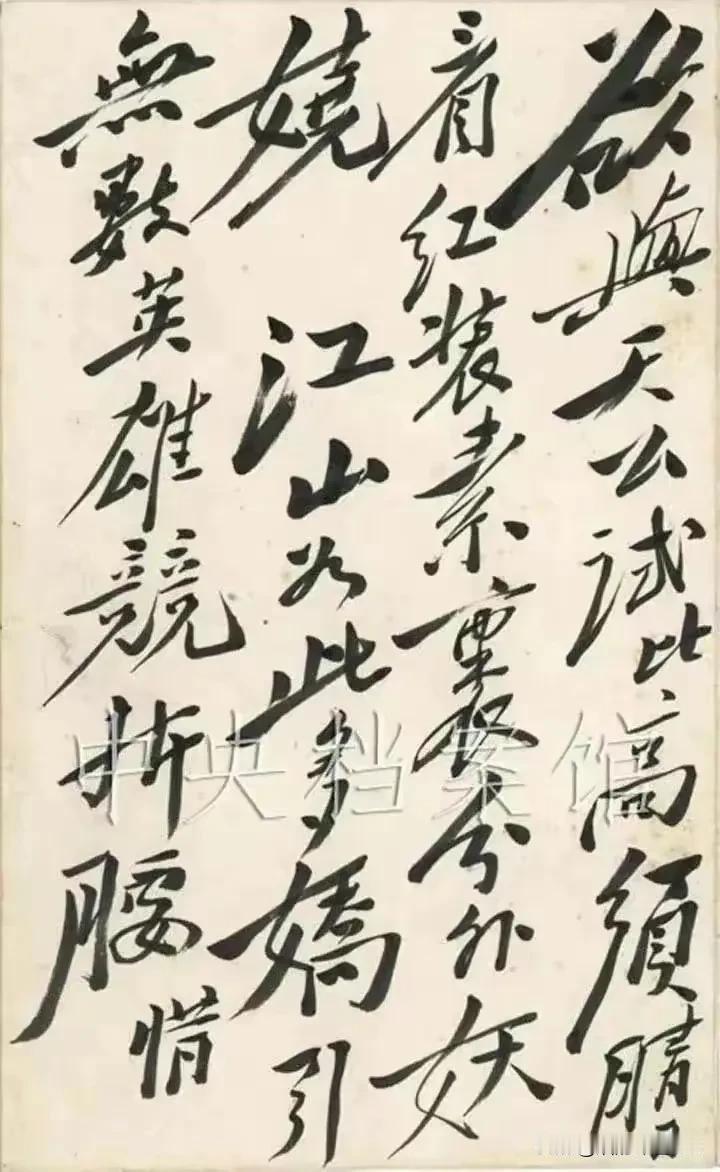 欲與天公試比高須晴日
看紅装素裹分外妖
嬈 江山如此多嬌引
無數英雄競折腰惜
中央档案馆